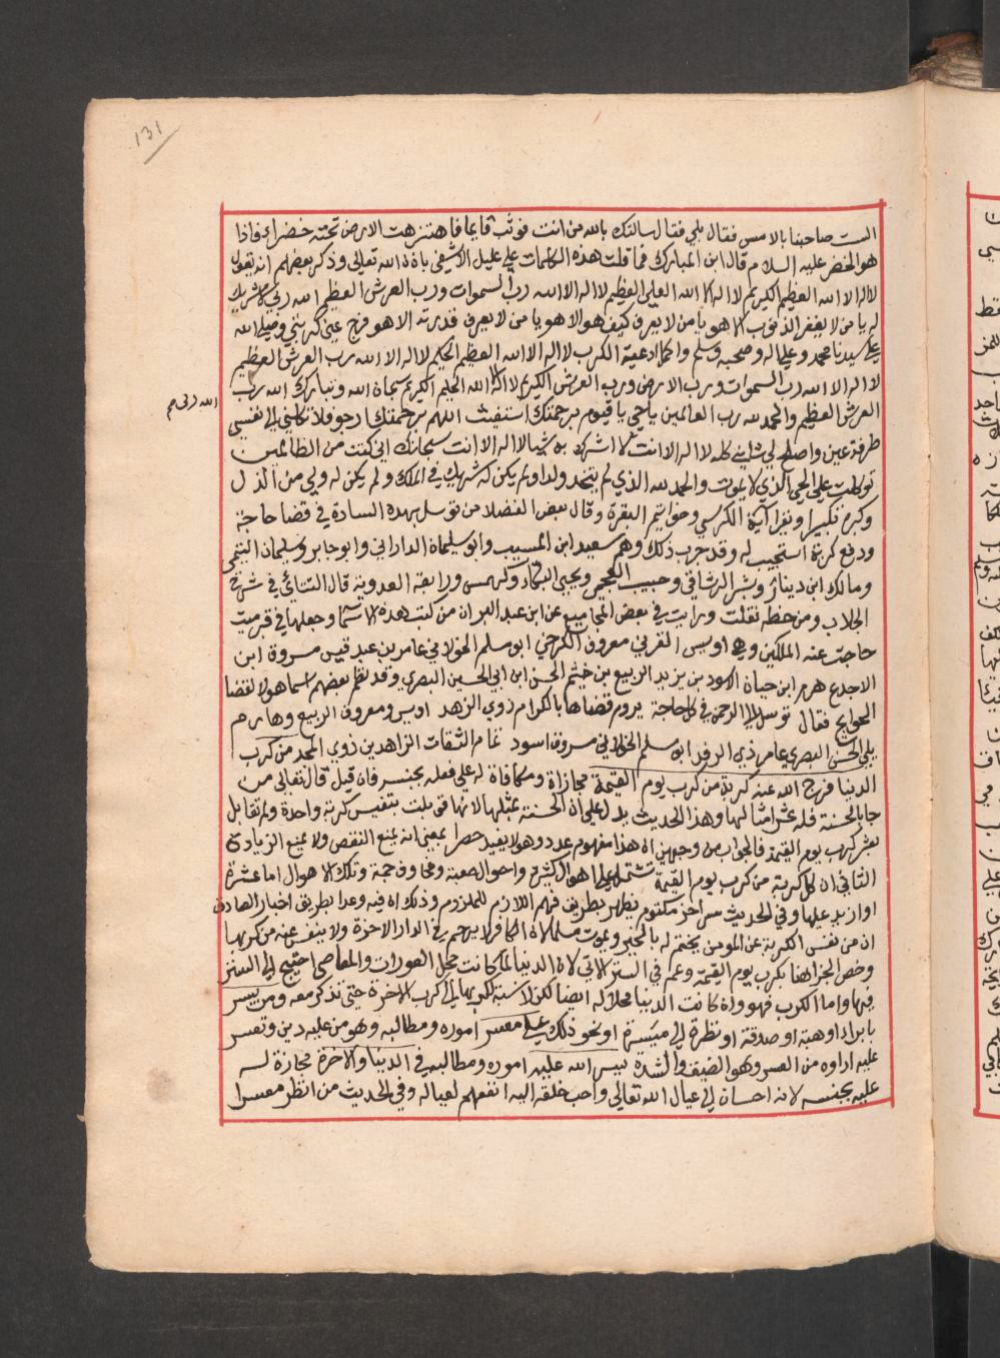 131
الست صاحبنا بالامس فقال بلي فقال سالتك بالله من انت فوثب قايما فاهتزت الارض تحته خضراء فاذا
هو الخضر عليه السلام قال ابن المبارك فما قلت هذه الكلمات علي عليل الا شفي باذن الله تعالي وذكر بعضهم انه يقول
لا اله الا الله العظيم الكريم لا اله الا الله العلي العظيم لا اله الا الله رب السموات ورب العرش العظيم الله ربي لا شريك
له يا من لا يغفر الذنوب الا هو يا من لا يعرف كيف هو الا هو يا من لا يعرف قدرته الا هو فرج عني كربتي وصلي الله
علي سيدنا محمد وعلي اله وصحبه وسلم واما ادعية الكرب لا اله الا الله العظيم الحليم لا اله الا الله رب العرش العظيم
لا اله الا الله رب السموات ورب الارض ورب العرش الكريم لا اله الا الله الحليم الكريم سبحان الله وتبارك الله رب
العرش العظيم والحمد لله رب العالمين يا حي يا قيوم برحمتك استغيث اللهم برحمتك ارجو فلا تكلني الي نفسي
الله ربي
طرفة عين واصلح لي شاني كله لا اله الا انت لا اشرك به شيا لا اله الا انت سبحانك اني كنت من الظالمين
توكلت علي الحي الذي لا يموت والحمد لله الذي لم يتخذ ولدا ولم يكن له شريك في الملك ولم يكن له ولي من الذل
وكبره تكبيرا ونقرا آية الكرسي وخواتيم البقرة وقال بعض الفضلا من توسل بهذه السادة في قضا حاجة
ودفع كربة استجيب له وقد جرب ذلك وهم سعيد ابن المسيب وابو سليمان الداراني وابو جابر وسليمان التيمي
ومالك ابن دينار وبشر الرشافي وحبيب العجمي ويحيي البكاء وكهمس ورابعة العدوية قال التتائي في شرح
الجلاب ومن خطه نقلت ورايت في بعض المجاميع عن ابن عبد البر ان من كتب هذه الاسما وجعلها في
حاجته عنه الملكين وهي اويس القرني معروف الكرخي ابو مسلم الخولاني عامر بن عبد قيس مسروق ابن
الاجدع هرم ابن حيان الاسود بن يزيد الربيع بن خيثم الحسن ابن ابي الحسين البصري وقد نظم بعضهم اسما هولا لقضا
الحوايج فقال توسل الي الرحمن في كل حاجة يروم قضاها بالكرام ذوي الزهد اويس ومعروف الربيع وهارم
يلي الحسن البصري عامر ذي الرفد ابو مسلم الخولاني مسروق اسود تمام الثقات الزاهدين ذوي المجد من كرب
الدنيا فرج الله عنه كربة من كرب يوم القيمة مجازاة ومكافاة له علي فعله بجنسه فان قيل قال تعالي من
جا بالحسنة فله عشر امثالها وهذا الحديث يدل علي ان الحسنة بمثلها لانها قوبلت بتنفيس كربة واحدة ولم تقابل
بعشر كرب يوم القيمة فالجواب من وجهين ان هذا مفهوم عدد وهو لا يفيد حصرا بمعني انه يمنع النقص ولا يمنع الزيادة
الثاني ان كل كربة من كرب يوم القيمة تشتمل علي اهوال كثيرة واحوال صعبة ومخاوف جمة وتلك الاهوال اما عشرة
او ازيد عليها وفي الحديث سر اخر مكتوم يظهر بطريق فهم اللازم للملزوم وذلك ان فيه وعدا بطريق اخبار الصادق
ان من نفس الكربة عن المومن يختم له بالخير ويموت مسلما لان الكافر لا يرحم في الدار الاخرة ولا ينفس عنه من كربها
وخص الجزا هنا بكرب يوم القيمة وعم في الستر الاتي لان الدنيا لما كانت محل العورات والمعاصي احتيج الي الستر
فيها واما الكرب فهو وان كانت الدنيا محلا له ايضا لكن لا نسبة لكربها الي كرب الاخرة حتي تذكر معه ومن يسر
بابراء او هبة او صدقة او نظرة الي ميسرة او نحو ذلك علي معسر اموره ومطالبه وهو من عليه دين وتعسر
عليه اداوه من العسر وهو الضيق والشدة يسر الله عليه اموره ومطالبه في الدنيا والاخرة مجازة له
عليه بجنسه لانه احسان الي عيال الله تعالي واحب خلقه اليه انفعهم لعياله وفي الحديث من انظر معسرا